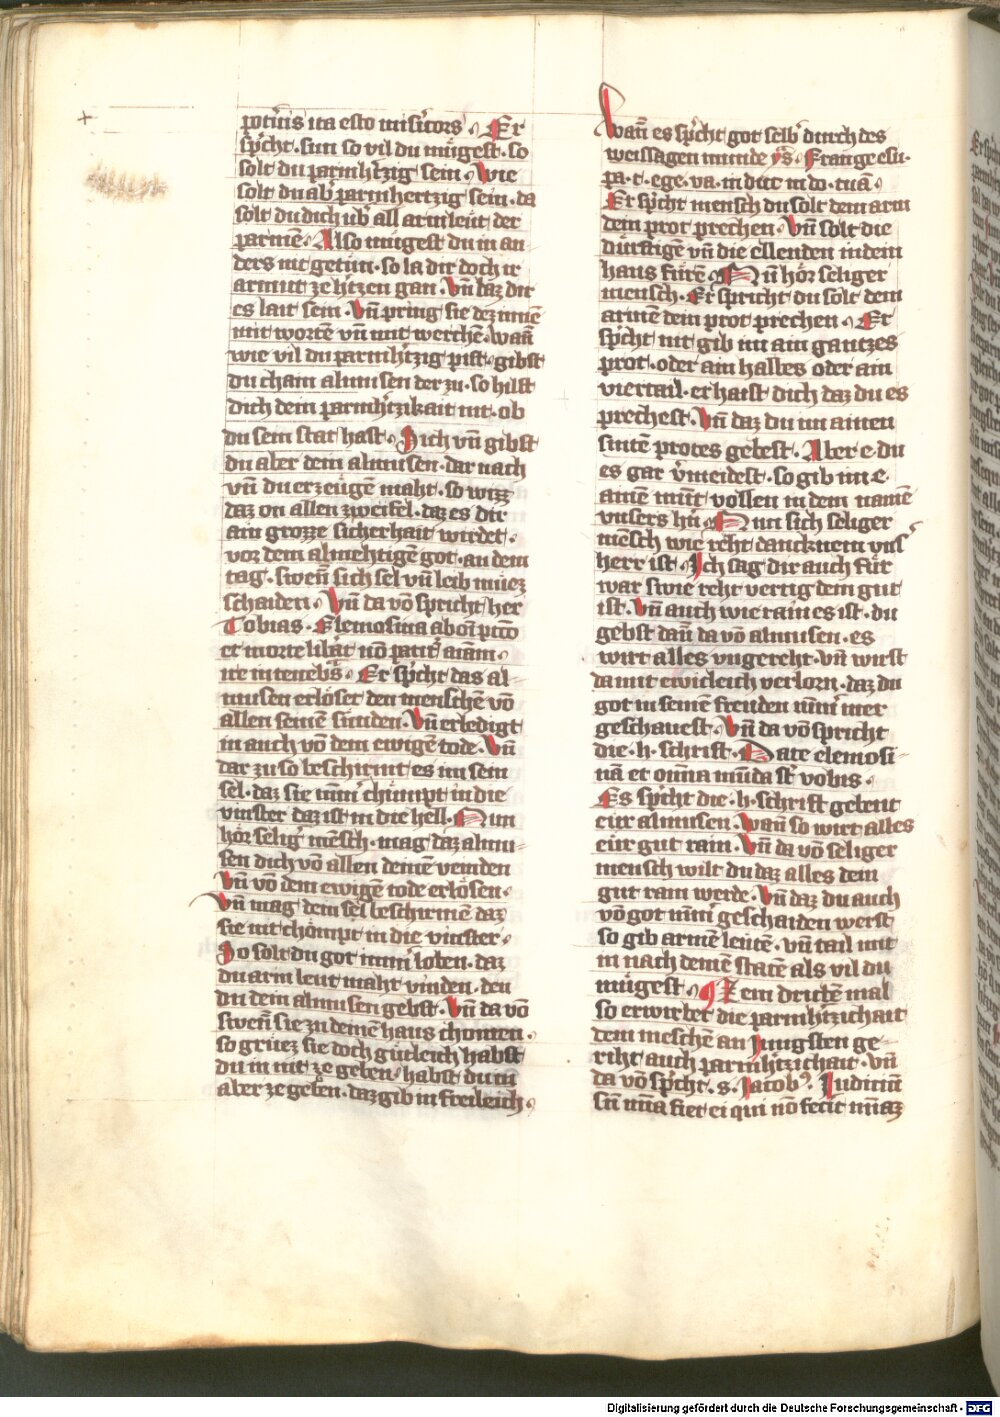 potueris ita esto misericors · Er
spͥcht · sun so vil du mügest · so
solt du parmhͤrzig sein · Wie
solt du abͤ parmhertzig sein · da
solt du dich ubͤ all arm leut der
parmē · Also mügest du in an
ders nit getün · so la dir doch ir
armut ze hͤtzen gan · Vn̄ laz dir
es lait sein · Vn̄ pring sie dez innē
mit wortē vn̄ mit werchē · wan̄
wie vil du parmhͤtzig pist · gibst
du chain almusen der zu · so hilft
dich dein parmhͤtzikait nit · ob
du sein stat hast · Sich vn̄ gibst
du aber dein almusen · dar nach
vn̄ du erzeügē maht · so wizz
daz on allen zweifel · daz es dir
ain grozze sicherhait wirdet ·
vor dem almehtigē got · an dem
tag · swen̄ sich sel vn̄ leib müez
schaiden · Vn̄ da vō spricht her
Tobias · Elemosina ab om̄i pctō
et morte libāt nō patit᷑ aīam ·
ire in tenebͣs · Er spͥcht das al
musen erlöset den menschē vō
allen seinē sünden · Vn̄ erledigt
in auch vō dem ewigē tode · Vn̄
dar zu so beschirmt es im sein
sel · daz sie nīm̄ chümpt in die
vinster daz ist in die hell · Nun
hör seligͤ mēsch · mag daz almu-
sen dich vō allen deinē veinden
Vn̄ vō dem ewigē tode erlösen ·
Vn̄ mag dein sel beschirmē daz
sie nit chömpt in die vinster ·
So solt du got nīm̄ loben · daz
du arm leut maht vinden · den
du dein almusen gebst · Vn̄ da vō
swen̄ sie zu deinē haus chomen ·
so grüez sie doch gütleich habst
du in nit ze geben / habst du in
aber ze geben · daz gib in freileich ·
Wan̄ es spͥcht got selbͤ durch des
weissagen munde ys̄ · Frange esu-
ri · pa · t · ege · va · in duc in do · tuā ·
Er spͥcht mensch du solt dem arm
dem prot prechen · Vn̄ solt die
dürftigē vn̄ die ellenden in dein
haus fürē · Nū hör seliger
mensch · Er spricht du solt dem
armē dein prot prechen · Er
spͥcht nit gib im ain gantzes
prot · oder ain halbes oder ain
viertail · er haist dich daz du es
prechest · Vn̄ daz du im ainen
snitē protes gebest · Aber e du
es gar v̄meidest · so gib im e
ainē mūt vollen in dem namē
vnsers hn̄ · Nun sich seliger
mēsch wie reht dancknem vnsͤ
herr ist · Ich sag dir auch für
war swie reht vertig dein gut
ist · Vn̄ auch wie rain es ist · du
gebst dan̄ da vō almusen · es
wirt alles vngereht · vn̄ wirst
da mit ewicleich verlorn · daz du
got in seinē freuden nim̄ mer
geschauest · Vn̄ da vō spricht
die · h · schrift · Date elemosi-
nā et om̄a mūda st̄ vobis ·
Es spͥcht die · h · schrift gebent
eür almusen · Wan̄ so wirt alles
eür gut rain · Vn̄ da vō seliger
mensch wilt du daz alles dein
gut rain werde · Vn̄ daz du auch
vō got nīm̄ geschaiden werst
so gib armē leutē · vn̄ tail mit
in nach deinē statē als vil du
mügest · Zem dritē mal
so erwirbet die parmhͤtzichait
dem meschē an Jungsten ge-
riht auch parmhͤtzichait · vn̄
da vō spͥcht · s · Jacobꝰ · Judiciū
sin̄ mīa fiet ei qui nō fecit mīaz
Digitalisierung gefördert durch die Deutsche Forschungsgemeinschaft - DFG